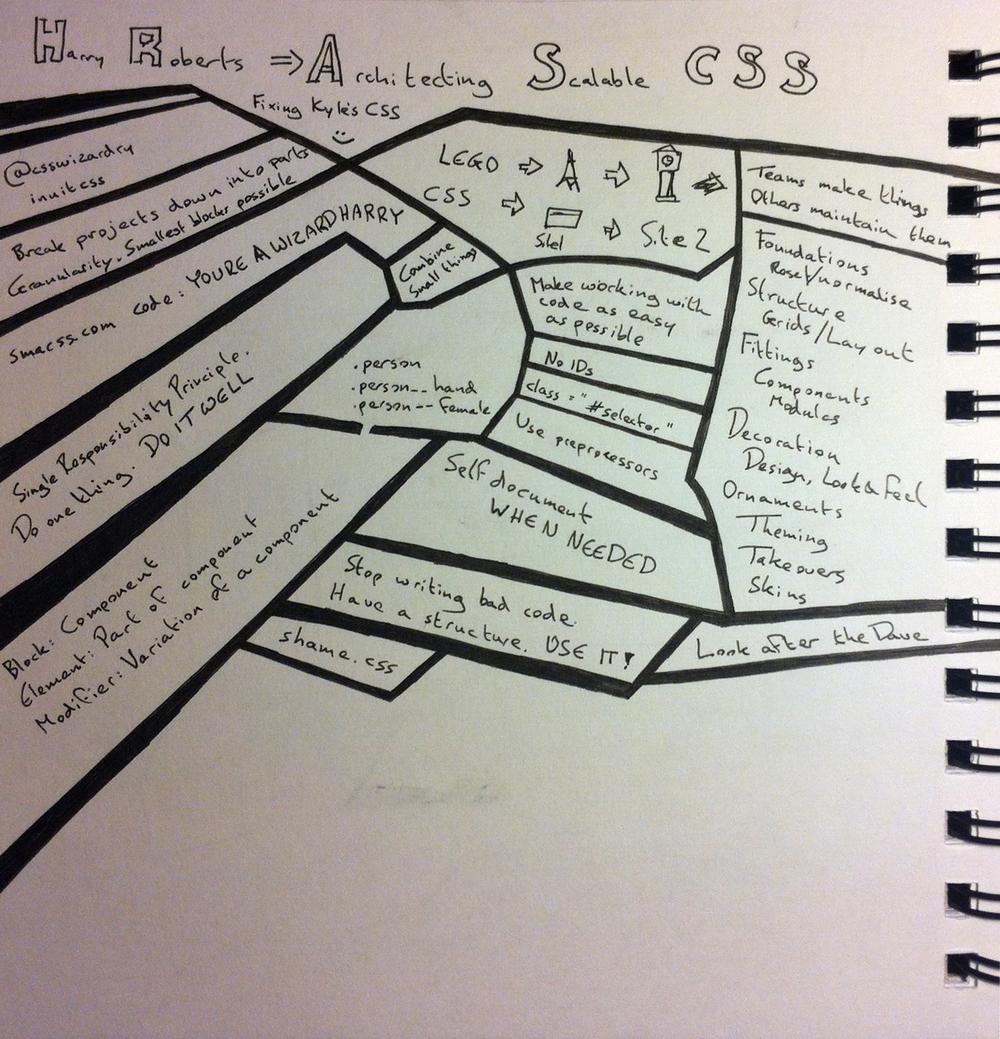 Harry Roberts => Architecting Scalable CSS
Fixing Kyle's CSS
@csswizardry
inuitcss
Break projects down into parts
Granularity. Smallest blocks possible
smacss.com code: YOURE A WIZARD HARRY
Combine
Small things
Single Responsibility Principle.
Do one thing. DO IT WELL
Block: Component
Element: Part of component
Modifier: Variation of a component
.person
.person__hand
.person--female
LEGO
CSS
Site1
Site 2
Make working with
code as easy
as possible
No IDs
class = "#selector"
Use preprocessors
Self document
WHEN NEEDED
Stop writing bad code.
Have a structure. USE IT!
shame.css
Teams make things
Others maintain them
Foundations
Reset/normalise
Structure
Grids/Layout
Fittings
Components
Modules
Decoration
Design, Look & Feel
Ornaments
Theming
Takeovers
Skins
Look after the Dave